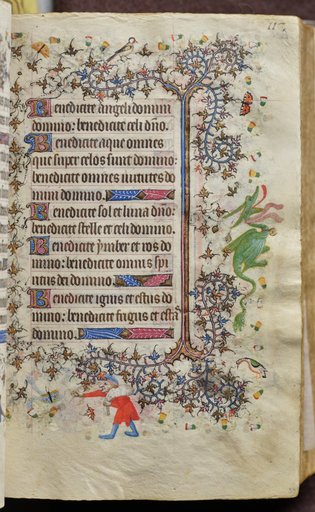 Benedicite angeli domini
domino: benedicite celi dño.
Benedicite aque omnes
que super celos sunt domino:
benedicite omnes virtutes do
mini domino.
Benedicite sol et luna dño:
benedicite stelle et celi domino.
Benedicite ymber et ros do
mino: benedicite omnis spi
ritus dei domino.
Benedicite ignis et estus do
mino: benedicite frigus et esta
domino.